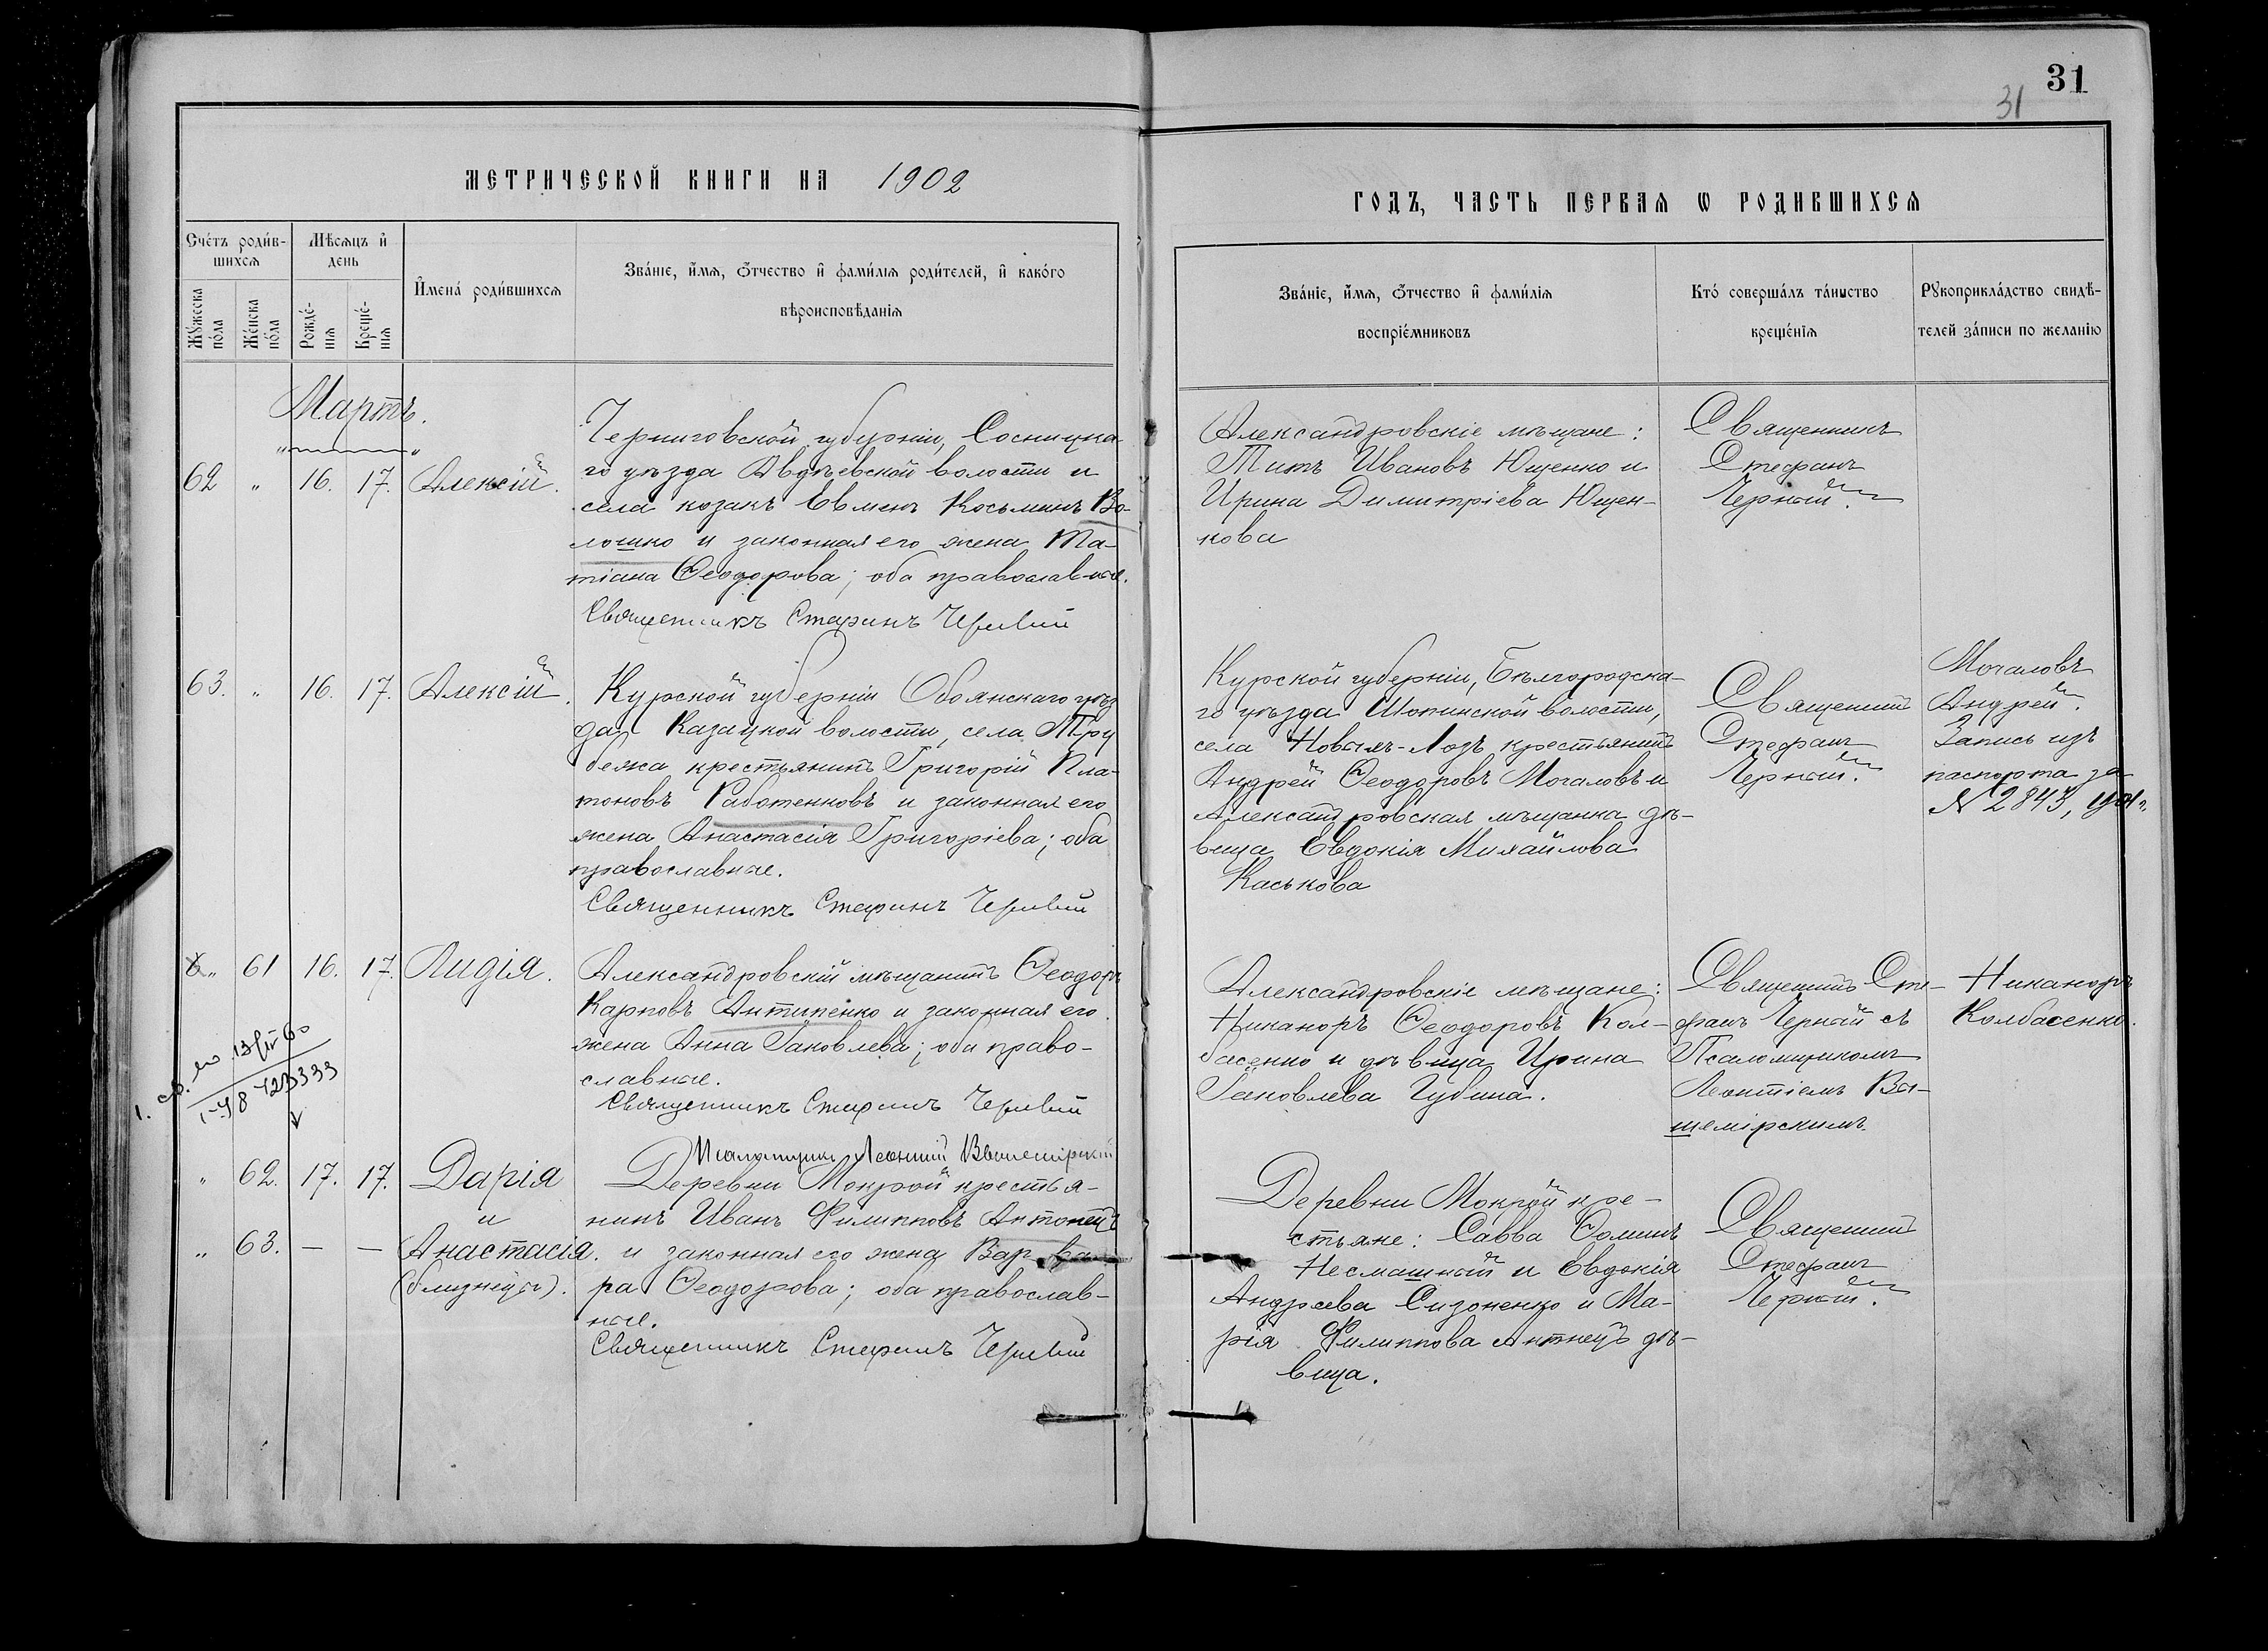 31
31
МЕТРИЧЕСКОЙ КНИГИ НА 1902
ГОДЪ, ЧАСТЬ ПЕРВАЯ Ѡ РОДИВШИХСЯ
Счетъ родившихся
Мѣсяцъ и день
Мужеска пола
Женска пола
Рожденія
Крещенія
Имена родившихся
Званіе, имя, отчество и фамилія родителей, и какого
вѣроисповѣданія
Званіе, имя, отчество и фамилія
воспріемниковъ
Кто совершалъ таинство
крещенія
Рукоприкладство свидѣ-
телей записи по желанію
Мартъ.
62 " 16. 17. Алексій.
Черниговской губерніи, Сосницка-
го уѣзда Авдѣевской волости и
села козакъ Евменъ Косьминъ Во-
лошко и законная его жена Та-
тіана Ѳеодорова; оба православные.
Священникъ Стефанъ Черный
Александровскіе мѣщане:
Титъ Ивановъ Ющенко и
Ирина Димитріева Ющен-
кова
Священникъ
Стефанъ
Черный.
63. " 16. 17. Алексій.
Курской губерніи Обоянскаго уѣз
да Казацкой волости, села Тру
бежа крестьянинъ Григорій Пла-
тоновъ Работенковъ и законная его
жена Анастасія Григоріева; оба
православные.
Священникъ Стефанъ Черный
Курской губерніи, Бѣлгородска-
го уѣзда Шопинской волости,
села Новыхъ-Лозъ крестьянинъ
Андрей Ѳеодоровъ Мочаловъ и
Александровская мѣщанка дѣ-
вица Евдокія Михайлова
Каськова
Священникъ
Стефанъ
Черный.
Мочаловъ
Андрей.
Запись изъ
паспорта за
№ 2843,
" 61 16. 17. Лидія.
Александровскій мѣщанинъ Ѳеодоръ
Карповъ Антипенко и законная его
жена Анна Іаковлева; оба право-
славные.
Священникъ Стефанъ Черный
Псаломщикъ Леонтій Вышемірскій
Александровскіе мѣщане:
Никаноръ Ѳеодоровъ Кол-
басенко и дѣвица Ирина
Іаковлева Губина.
Священникъ Сте-
фанъ Черный съ
Псаломщикомъ
Леонтіемъ Вы-
шемірскимъ
Никаноръ
Колбасенко.
" 62. 17. 17. Дарія
и
" 63. — — Анастасія.
(близнецы).
Деревни Мокрой крестья-
нинъ Иванъ Филипповъ Антонецъ
и законная его жена Варва-
ра Ѳеодорова; оба православ-
ные.
Священникъ Стефанъ Черный
Деревни Мокрой кре-
стьяне: Савва Ѳоминъ
Несмашный и Евдокія
Андреева Сизоненко и Ма-
рія Филиппова Антонецъ дѣ-
вица.
Священникъ
Стефанъ
Черный.